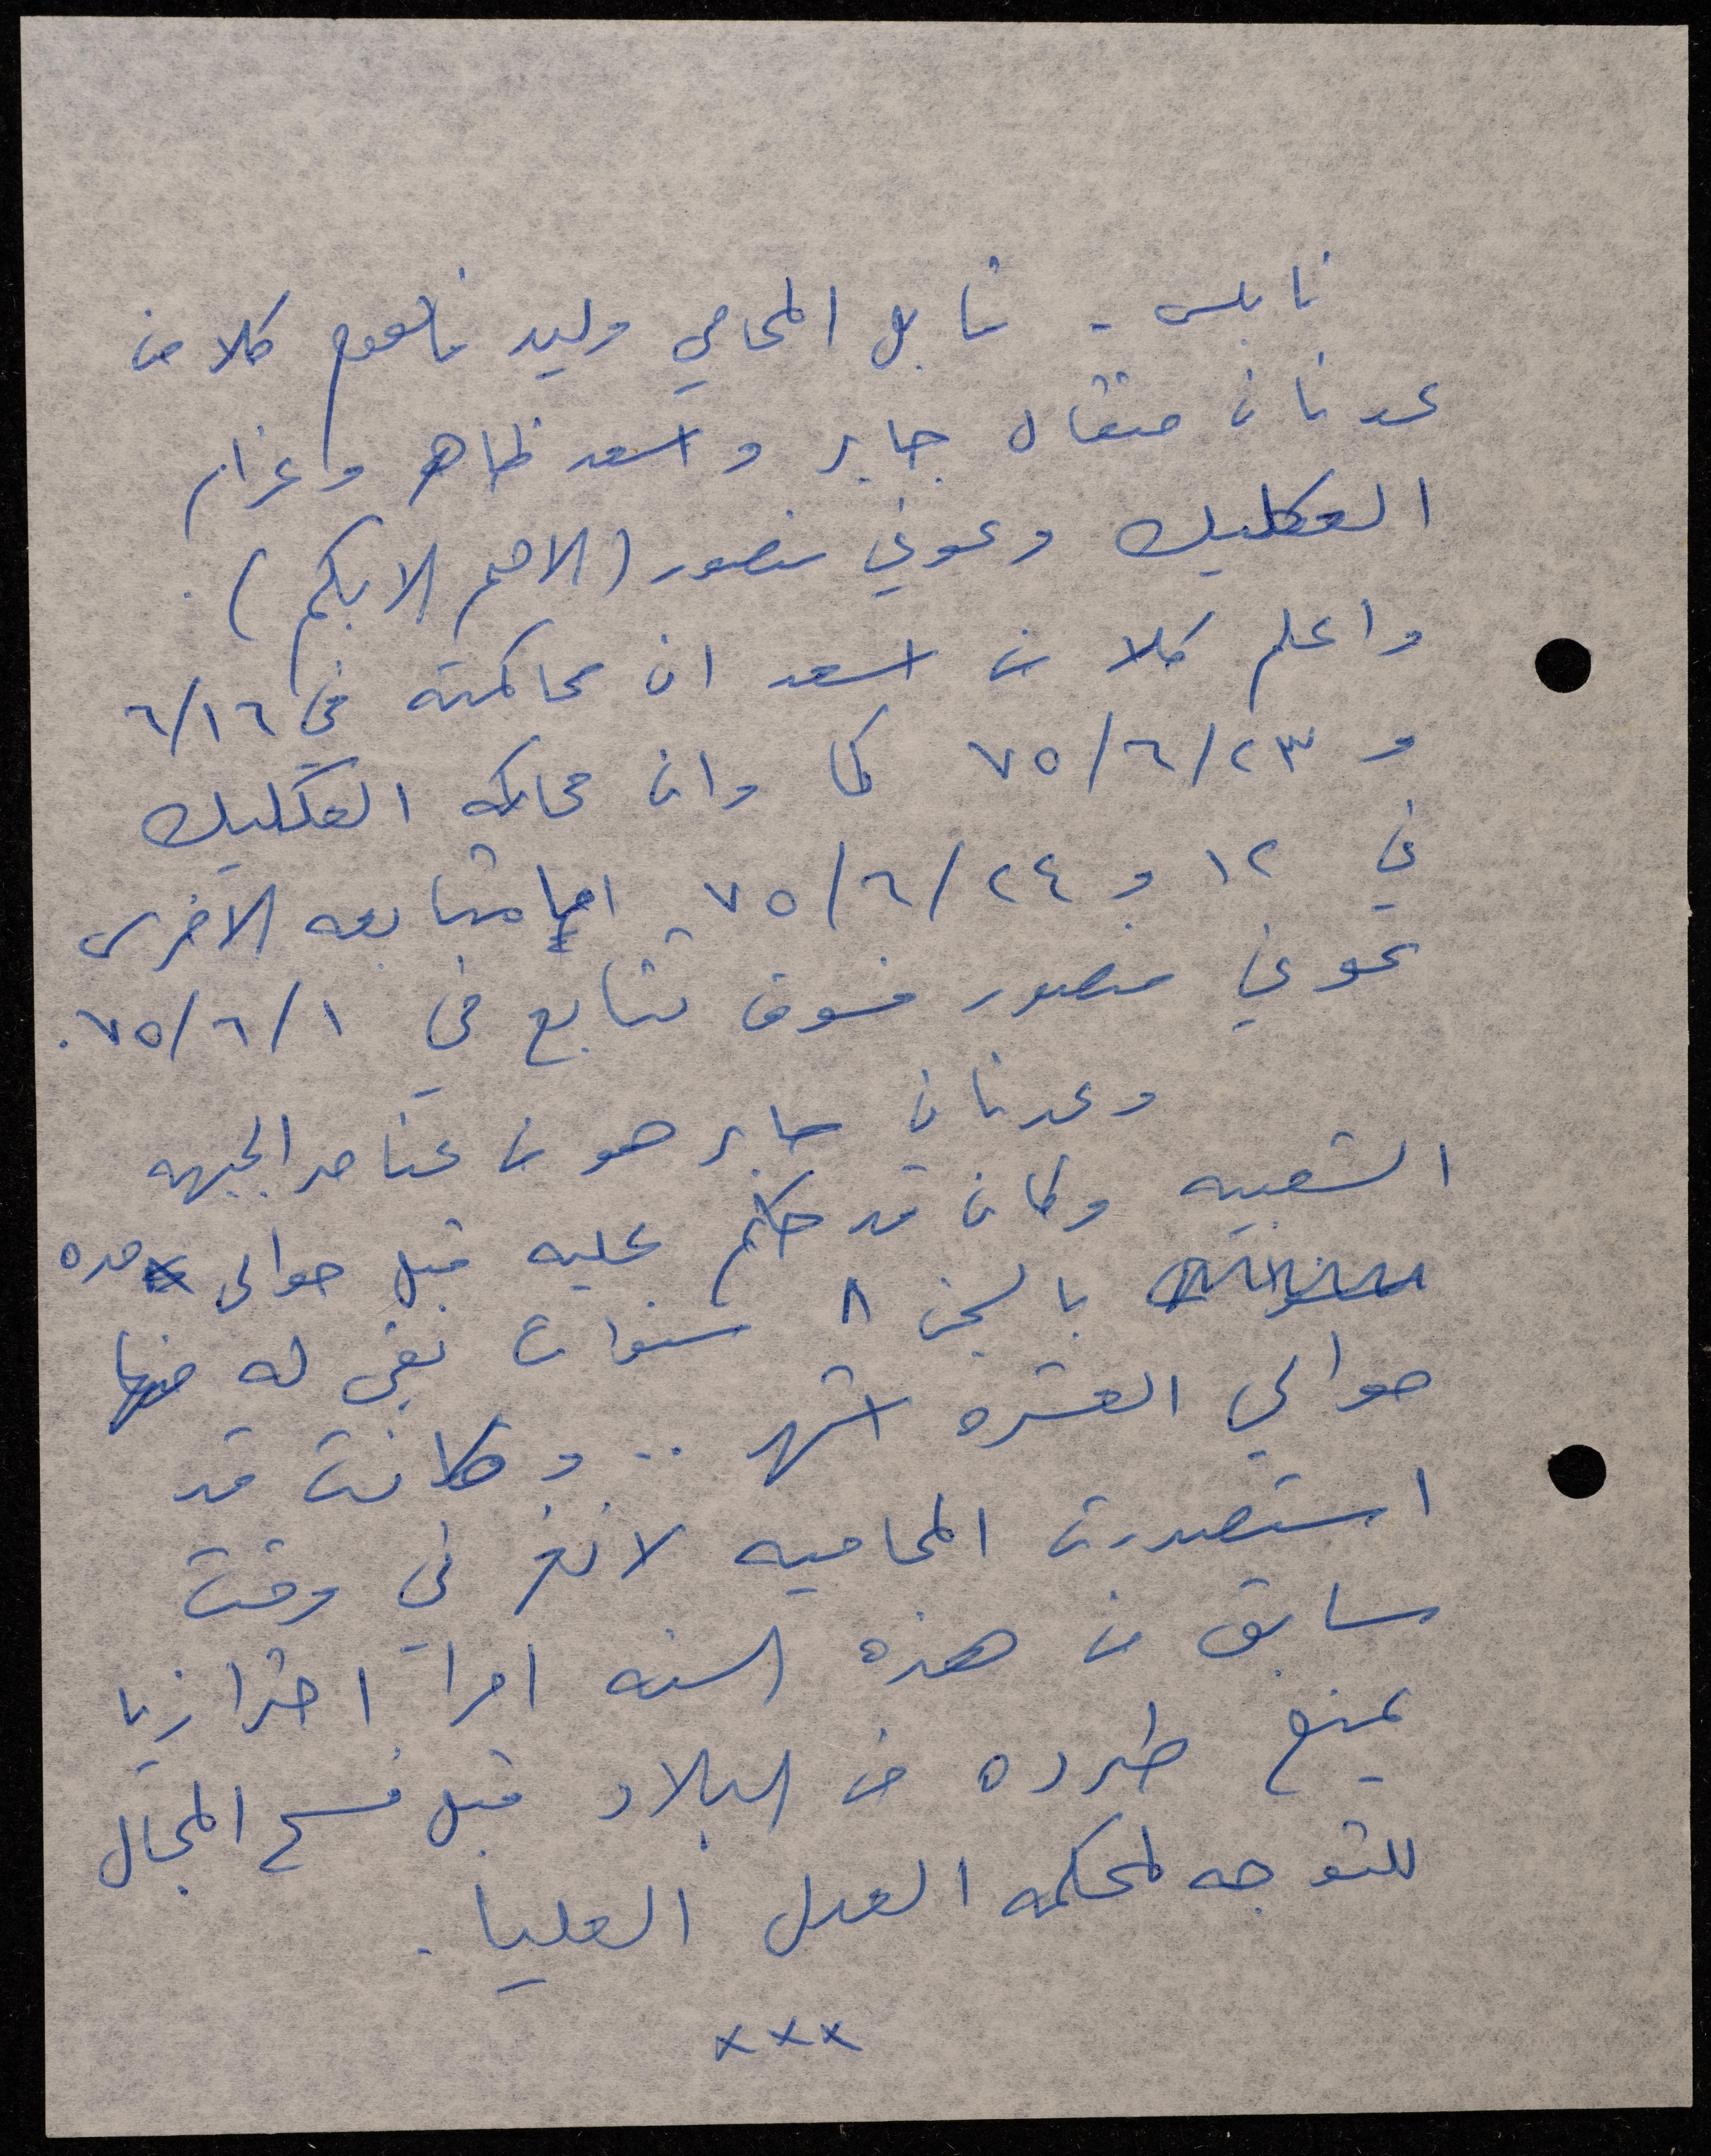 نابلس - قابل المحامي وليد فاهوم كلا من
عدنان منقال جابر و اسعد ظاهر و غزار
العكليك وعوني منصور (الاصم الابكم).
واعلم كلا من اسعد ان محاكمته في ٦/١٦
و ٧٥/٦/٢٣ كما وان محاكمه العكليك
في ١٢ و ٧٥/٦/٢٤ اما متابعه الاخرس
عوني منصور فسوف تتابع في ٧٥/٦/١.
وعدنان جابر هو من عناصر الجبهه
الشعبيه وكان قد حكم عليه قبل حوالي مده
بالسجن ٨ سنوات بقي له منها
حوالي العشره اشهر .. وكانت قد
استصدرت المحاميه لانغر في وقت
سابق من هذه السنه امرا احترازيا
يمنع طرده من البلاد قبل فسح المجال
للتوجه لمحكمه العدل العليا.
×××